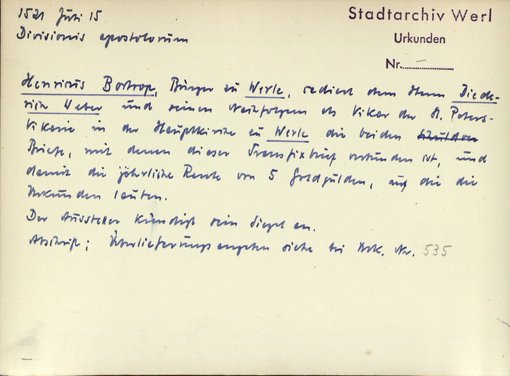 1521 Juli 15
Divisionis apostolorum
Stadtarchiv Werl
Urkunden
Nr. –
Henricus Bortrop, Bürger zu Werle, cediert dem Herrn Diede-
rich Weber und seinen Nachfolgern als Vikar der St. Peters-
Vikarie in der Hauptkirche zu Werle die beiden
Briefe, mit denen dieser Transfixbrief verbunden ist, und
damit die jährliche Rente von 5 Goldgulden, auf die die
Urkunden lauten.
Der Aussteller kündigt sein Siegel an.
Abschrift; Überlieferungsangaben siehe bei Urk. Nr. 535